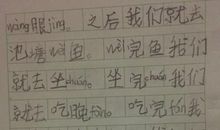 wàng眼jīng。之后我们就去
池塘wèi鱼。wèi完鱼我们
就去坐chuán。坐完chuán我们
就去吃晚fàn。吃完fàn我